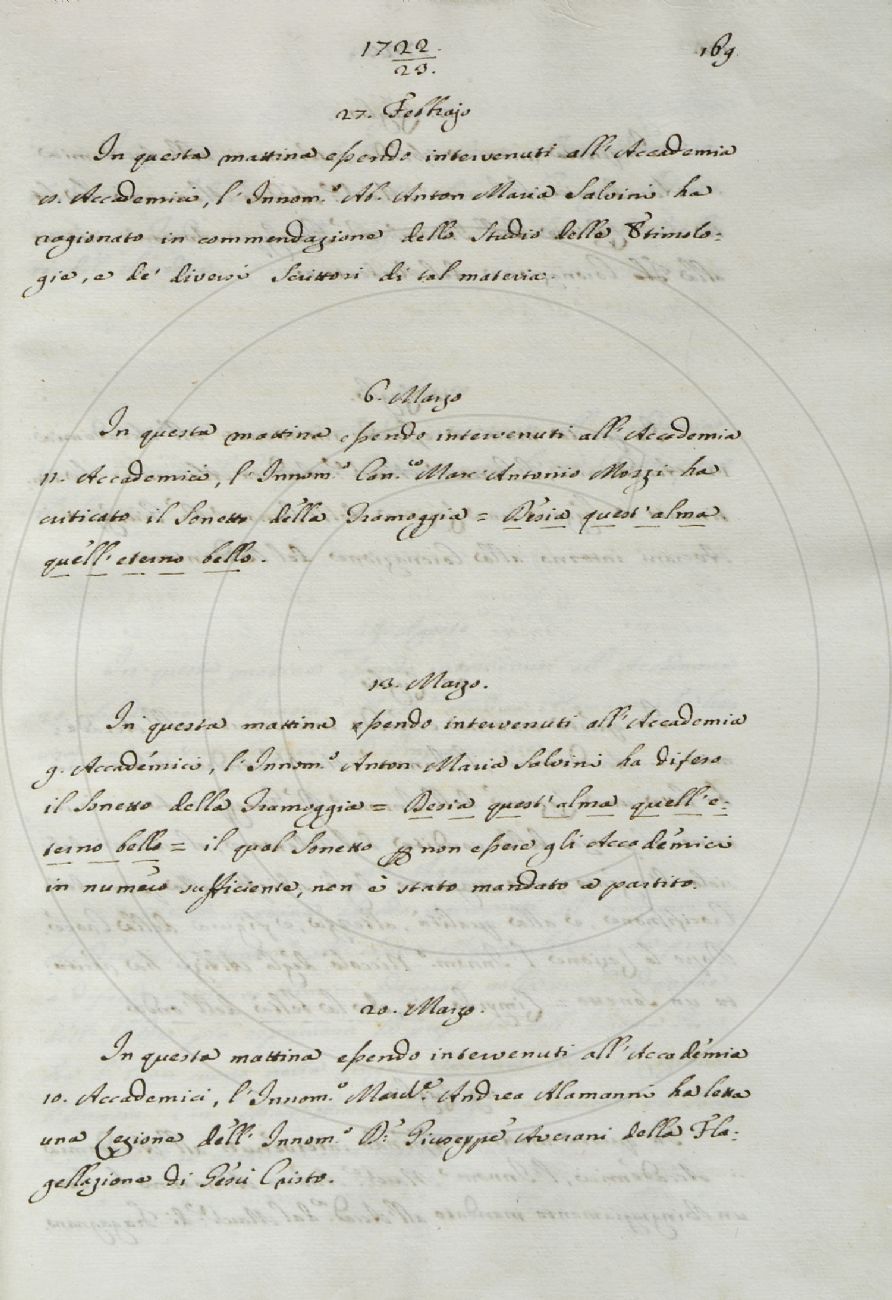 1722.
23.
169
27. Febbrajo
In questa mattina essendo intervenuti all'Accademia
10. Accademici, l'Innom.º Ab. Anton Maria Salvini ha
ragionato in commendazione dello Studio delle Etimolo=
gie, e de' diversi Scrittori di tal materia.
6. Marzo
In questa mattina essendo intervenuti all'Accademia
11. Accademici, l'Innom.º Can.co Marc'Antonio Mozzi ha
criticato il Sonetto della Tramoggia = Desia quest'alma
quell'eterno bello.
13. Marzo.
In questa mattina essendo intervenuti all'Accademia
9. Accademici, l'Innom.º Anton Maria Salvini ha difeso
il Sonetto della Tramoggia = Desia quest'alma quell'e=
terno bello = il qual Sonetto per non essere gli Accademici
in numero sufficiente, non è stato mandato a partito.
20. Marzo.
In questa mattina essendo intervenuti all'Accademia
10. Accademici, l'Innom.º March.e Andrea Alamanni ha letta
una Lezione dell'Innom.º D.r Giuseppe Averani della Fla=
gellazione di Gesù Cristo.